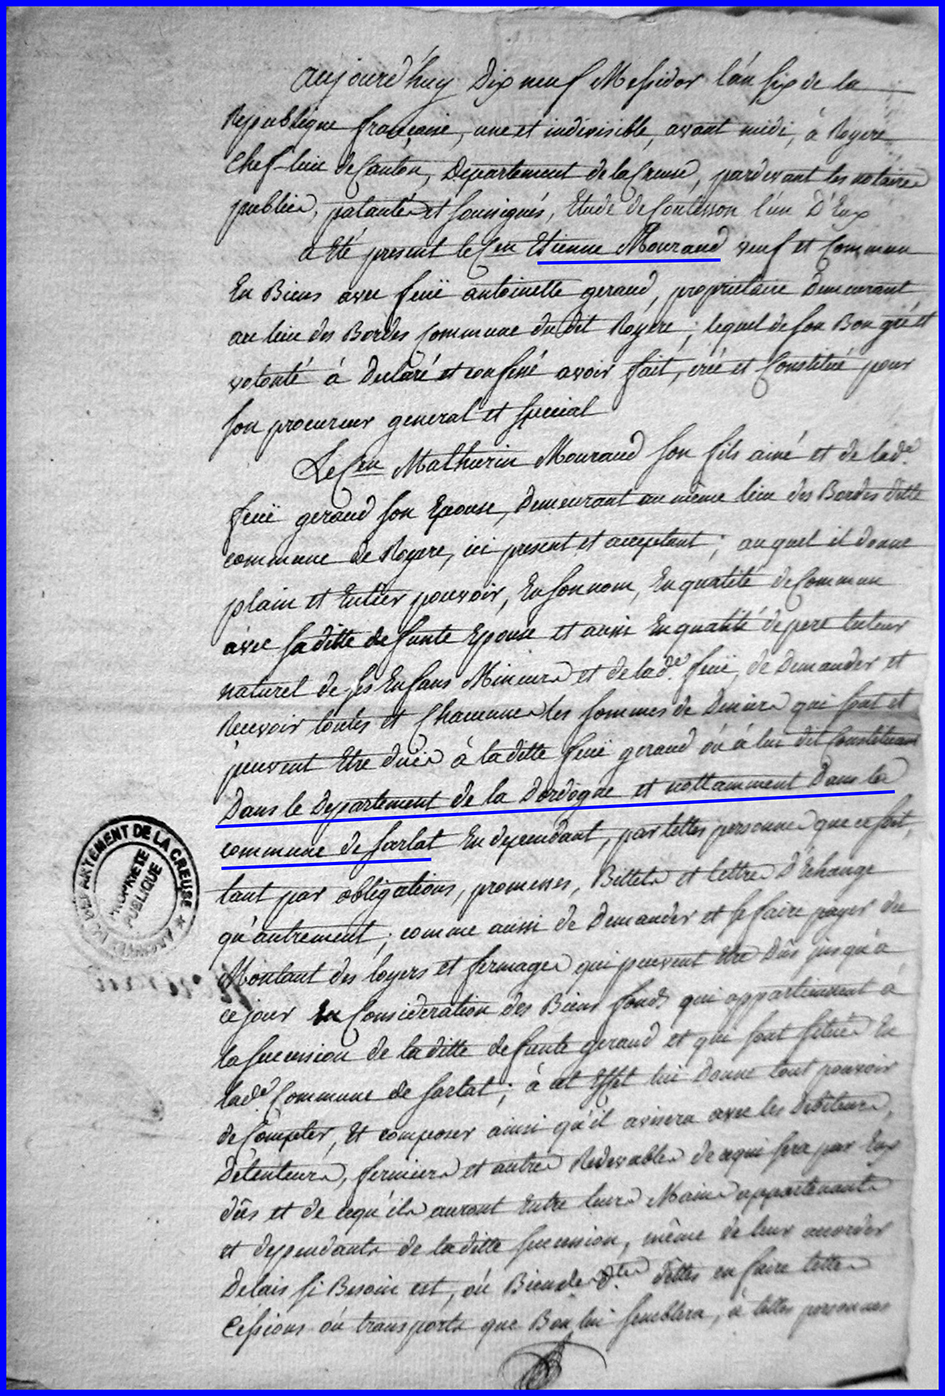 aujourd'huy Dix neuf Messidor l'an six de la
Republique française, une et indivisible, avant midi, à Royere
Chef-lieu de Canton, Departement de la Creuse, pardevant les notaires
publics, patantés et soussignés, Etude de Coutisson l'un D'Eux
a été present le Cen Etienne Mouraud veuf et Commun
En Biens avec feüe antoinette geraud, proprietaire Demeurant
au lieu des Bordes Commune du dit Royere; lequel de son Bon gré et
volonté à Declaré et confessé avoir fait, créé et Constitué pour
son procureur general et special
Le Cen Mathurin Mouraud son fils ainé et de lade.
feüe geraud son Epouse, Demeurant au même lieu des Bordes ditte
commune de Royere, ici present et acceptant; auquel il donne
plain et Entier pouvoir, En son nom, En qualité de Commun
avec sa ditte defunte Epouse et aussi En qualité de pere tuteur
naturel de ses Enfans Mineurs et de lade. feüe, de Demander et
Recevoir toutes et Chacunnes les sommes de Deniers qui sont et
peuvent Etre dües à laditte feüe geraud ou à lui dit Constituant
Dans le Departement de la Dordogne et nottamment Dans la
commune de Sarlat En dependant, par telles personnes que ce soit,
tant par obligations, promesses, Billets et lettres D'Echange
qu'autrement; comme aussi de Demander et se faire payer du
Montant des loyers et fermages qui peuvent Etre Dûs jusqu'à
ce jour En Consideration des Biens fonds qui appartiennent à
la succession de la ditte defunte geraud et qui sont situés En
lade Commune de Sarlat; à cet Effet lui Donne tout pouvoir
de Compter, Et composer ainsi qu'il avisera avec les Debiteurs,
Detenteurs, fermiers et autres Redevables de ce qui sera par Eux
dûs et de ce qu'ils auront Entre leurs Mains appartenants
et dependants de la ditte succession, même de leur accorder
Delais si Besoin est, ou Bien des dtes dettes en faire telles
Cessions ou transports que Bon lui semblera, à telles personnes
ARCHIVES DU DEPARTEMENT DE LA CREUSE
PROPRIÉTÉ
PUBLIQUE